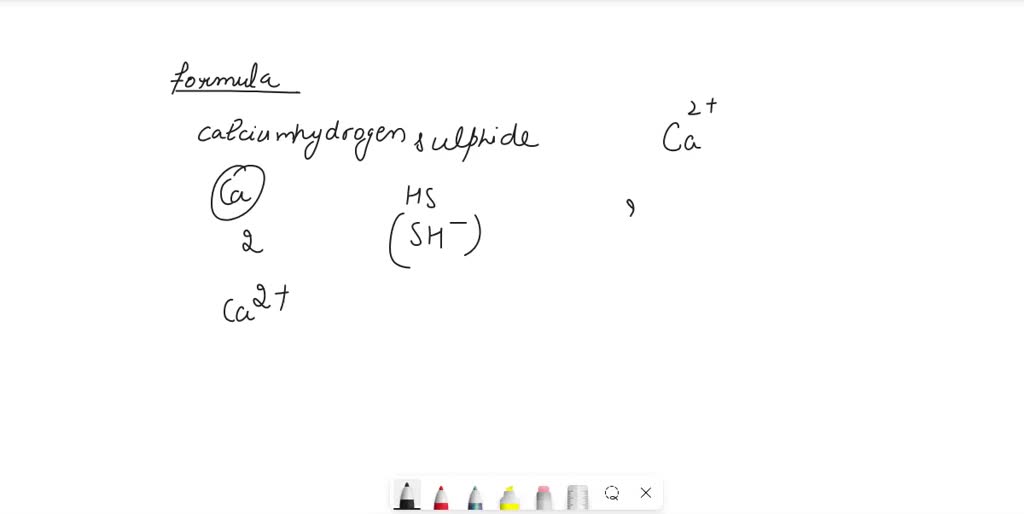 formula
calciumhydrogen sulphide Ca2+
Ca HS
(SH−) ,
2
Ca2+